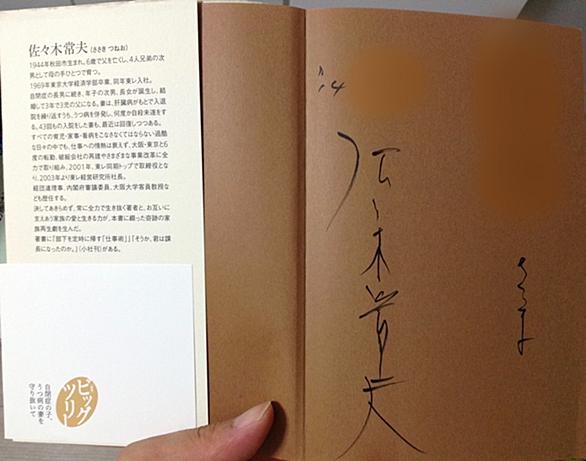 佐々木常夫(ささき つねお)
1944年秋田市生まれ。6歳で父を亡くし、4人兄弟の次
男として母の手ひとつで育つ。
1969年東京大学経済学部卒業、同年東レ入社。
自閉症の長男に続き、年子の次男、長女が誕生し、結
婚して3年で3児の父になる。妻は、肝臓病がもとで入退
院を繰り返すうち、うつ病を併発し、何度か自殺未遂をす
る。43回もの入院をした妻も、最近は回復しつつある。
すべての育児・家事・看病をこなさなくてはならない過酷
な日々の中でも、仕事への情熱は衰えず、大阪・東京と6
度の転勤、破綻会社の再建やさまざまな事業改革に全
力で取り組み、2001年、東レ同期トップで取締役とな
り、2003年より東レ経営研究所社長。
経団連理事、内閣府審議委員、大阪大学客員教授な
ども歴任する。
決してあきらめず、常に全力で生き抜く著者と、お互いに
支えあう家族の愛と生きる力が、本書に綴った奇跡の家
族再生劇を生んだ。
著書に『部下を定時に帰す「仕事術」』『そうか、君は課
長になったのか。』(小社刊)がある。
ビッグ
ツリー
自閉症の子、
うつ病の妻を
守り抜いて
さま
佐々木常夫
'14